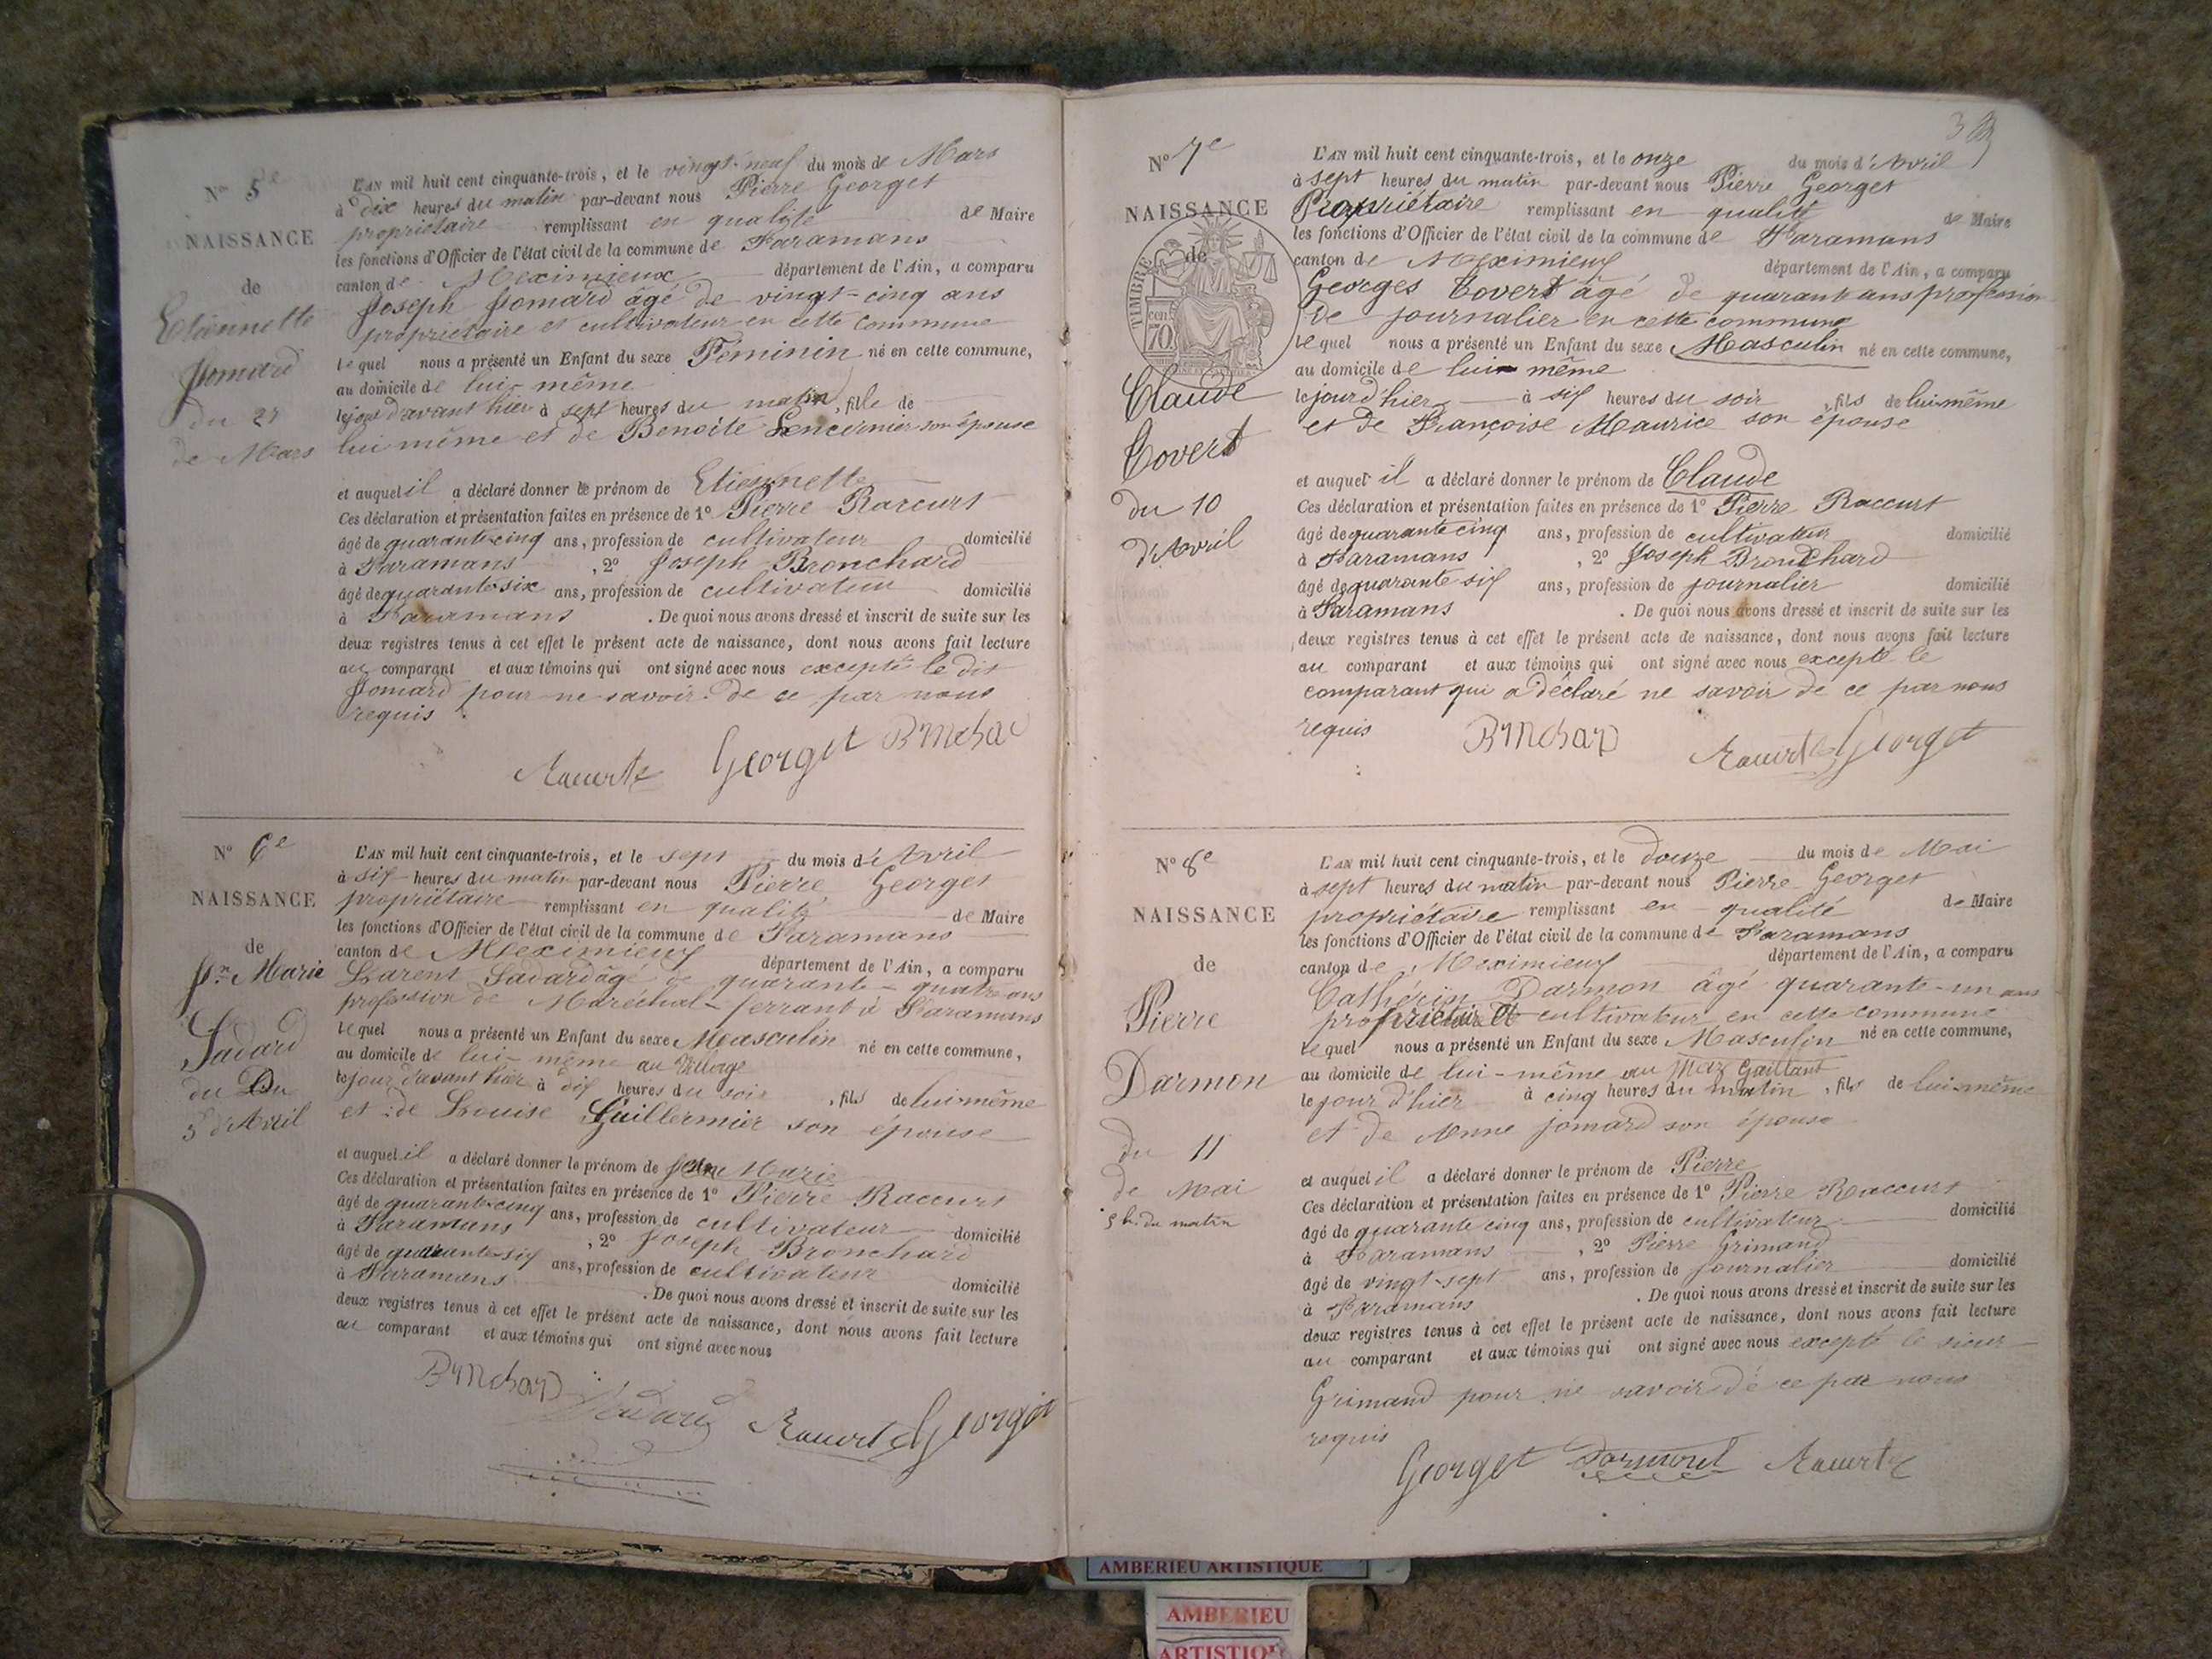 N° 5e
NAISSANCE
de
Etiennette
Jomard
du 27
de Mars
L'AN mil huit cent cinquante-trois, et le vingt-neuf du mois de Mars
à dix heures du matin par-devant nous Pierre Georget
propriétaire remplissant en qualité de Maire
les fonctions d'Officier de l'état civil de la commune de Faramans
canton de Meximieux département de l'Ain, a comparu
Joseph Jomard âgé de vingt-cinq ans
propriétaire et cultivateur en cette commune
lequel nous a présenté un Enfant du sexe Féminin né en cette commune,
au domicile de lui-même
le jour d'avant hier à sept heures du matin, fille de
lui même et de Benoite son épouse
et auquel il a déclaré donner le prénom de Etiennette
Ces déclaration et présentation faites en présence de 1° Pierre Raccurt
âgé de quarante-cinq ans, profession de cultivateur domicilié
à Faramans, 2° Joseph Bronchard
âgé de quarante six ans, profession de cultivateur domicilié
à Faramans. De quoi nous avons dressé et inscrit de suite sur les
deux registres tenus à cet effet le présent acte de naissance, dont nous avons fait lecture
au comparant et aux témoins qui ont signé avec nous excepté le dit
Jomard pour ne savoir de ce par nous
requis
Raccurt Georget
N° 6e
NAISSANCE
de
Jn Marie
Savard
du
5 d'Avril
L'AN mil huit cent cinquante-trois, et le sept du mois d'Avril
à six heures du matin par-devant nous Pierre Georget
propriétaire remplissant en qualité de Maire
les fonctions d'Officier de l'état civil de la commune de Faramans
canton de Meximieux département de l'Ain, a comparu
Laurent Savard âgé de quarante-quatre ans
profession de Maréchal-ferrant à Faramans
lequel nous a présenté un Enfant du sexe Masculin né en cette commune,
au domicile de lui-même au Village
le jour d'avant hier à dix heures du soir, fils de lui même
et de Louise Guillermier son épouse
et auquel il a déclaré donner le prénom de Jean Marie
Ces déclaration et présentation faites en présence de 1° Pierre Raccurt
âgé de quarante-cinq ans, profession de cultivateur domicilié
à Faramans, 2° Joseph Bronchard
âgé de quarante-six ans, profession de cultivateur domicilié
à Faramans. De quoi nous avons dressé et inscrit de suite sur les
deux registres tenus à cet effet le présent acte de naissance, dont nous avons fait lecture
au comparant et aux témoins qui ont signé avec nous
Savard Raccurt Georget
3
N° 7e
NAISSANCE
de
TIMBRE
70
Claude
Covert
du 10
d'Avril
L'AN mil huit cent cinquante-trois, et le onze du mois d'Avril
à sept heures du matin par-devant nous Pierre Georget
Propriétaire remplissant en qualité de Maire
les fonctions d'Officier de l'état civil de la commune de Faramans
canton de Meximieux département de l'Ain, a comparu
Georges Covert âgé de quarante ans profession
de journalier en cette commune
lequel nous a présenté un Enfant du sexe Masculin né en cette commune,
au domicile de lui même
le jour d'hier à six heures du soir, fils de lui même
et de Françoise Maurice son épouse
et auquel il a déclaré donner le prénom de Claude
Ces déclaration et présentation faites en présence de 1° Pierre Raccurt
âgé de quarante cinq ans, profession de cultivateur domicilié
à Faramans, 2° Joseph Bronchard
âgé de quarante six ans, profession de journalier domicilié
à Faramans. De quoi nous avons dressé et inscrit de suite sur les
deux registres tenus à cet effet le présent acte de naissance, dont nous avons fait lecture
au comparant et aux témoins qui ont signé avec nous excepté le
comparant qui a déclaré ne savoir de ce par nous
requis
Raccurt Georget
N° 8e
NAISSANCE
de
Pierre
Darmon
du 11
de Mai
5 h. du matin
L'AN mil huit cent cinquante-trois, et le douze du mois de Mai
à sept heures du matin par-devant nous Pierre Georget
propriétaire remplissant en qualité de Maire
les fonctions d'Officier de l'état civil de la commune de Faramans
canton de Meximieux département de l'Ain, a comparu
Cathérin Darmon âgé quarante-un ans
propriétaire et cultivateur en cette commune
lequel nous a présenté un Enfant du sexe Masculin né en cette commune,
au domicile de lui-même au Maz Gaillant
le jour d'hier à cinq heures du matin, fils de lui même
et de Anne jomard son épouse
et auquel il a déclaré donner le prénom de Pierre
Ces déclaration et présentation faites en présence de 1° Pierre Raccurt
âgé de quarante cinq ans, profession de cultivateur domicilié
à Faramans, 2° Pierre Grimand
âgé de vingt-sept ans, profession de journalier domicilié
à Faramans. De quoi nous avons dressé et inscrit de suite sur les
deux registres tenus à cet effet le présent acte de naissance, dont nous avons fait lecture
au comparant et aux témoins qui ont signé avec nous excepté le sieur
Grimand pour ne savoir de ce par nous
requis
Georget Darmont Raccurt
AMBERIEU ARTISTIQUE
AMBERIEU
ARTISTIQU